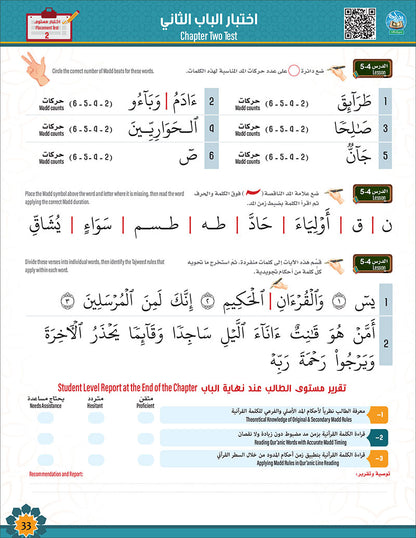 اختبار مستوى
Placement Test
2
اختبار الباب الثاني
Chapter Two Test
الدرس 4-5
Lesson
ضع دائرة على عدد حركات المد المناسبة لهذه الكلمات.
Circle the correct number of Madd beats for these words.
1 طَرَآئِقَ حركات (2 - 4 - 5 - 6) Madd counts
2 ءَادَمُ | وَبَآءُو حركات (2 - 4 - 5 - 6) Madd counts
3 صَٰلِحًا حركات (2 - 4 - 5 - 6) Madd counts
4 ٱلْحَوَارِيِّـۧنَ حركات (2 - 4 - 5 - 6) Madd counts
5 جَآنٌّ حركات (2 - 4 - 5 - 6) Madd counts
6 صٓ حركات (2 - 4 - 5 - 6) Madd counts
الدرس 4-5
Lesson
ضع علامة المد الناقصة ( ) فوق الكلمة والحرف
ثم اقرأ الكلمة بضبط زمن المد.
Place the Madd symbol above the word and letter where it is missing, then read the word
applying the correct Madd duration.
ن | ق | أَوْلِيَاءَ | حَادَّ | طه | طسم | سَوَاءٍ | يُشَاقِّ
الدرس 4-5
Lesson
قسّم هذه الآيات إلى كلمات منفردة، ثم استخرج ما تحويه
كل كلمة من أحكام تجويدية.
Divide these verses into individual words, then identify the Tajweed rules that
apply within each word.
1 يسٓ ١ وَٱلْقُرْءَانِ | ٱلْحَكِيمِ ٢ إِنَّكَ لَمِنَ ٱلْمُرْسَلِينَ ٣
2 أَمَّنْ هُوَ قَٰنِتٌ ءَانَآءَ ٱلَّيْلِ سَاجِدًا وَقَآئِمًا يَحْذَرُ ٱلْأٓخِرَةَ
وَيَرْجُوا۟ رَحْمَةَ رَبِّهِۦ
تقرير مستوى الطالب عند نهاية الباب Student Level Report at the End of the Chapter
متقن متردد يحتاج مساعدة
Proficient Hesitant Needs Assistance
1- معرفة الطالب نظرياً لأحكام المد الأصلي والفرعي للكلمة القرآنية
Theoretical Knowledge of Original & Secondary Madd Rules
2- قراءة الكلمة القرآنية بزمن مد مضبوط دون زيادة ولا نقصان
Reading Qur'anic Words with Accurate Madd Timing
3- قراءة الكلمة القرآنية بتطبيق زمن أحكام المدود من خلال السطر القرآني
Applying Madd Rules in Qur'anic Line Reading
توصية وتقرير:
Recommendation and Report:
33